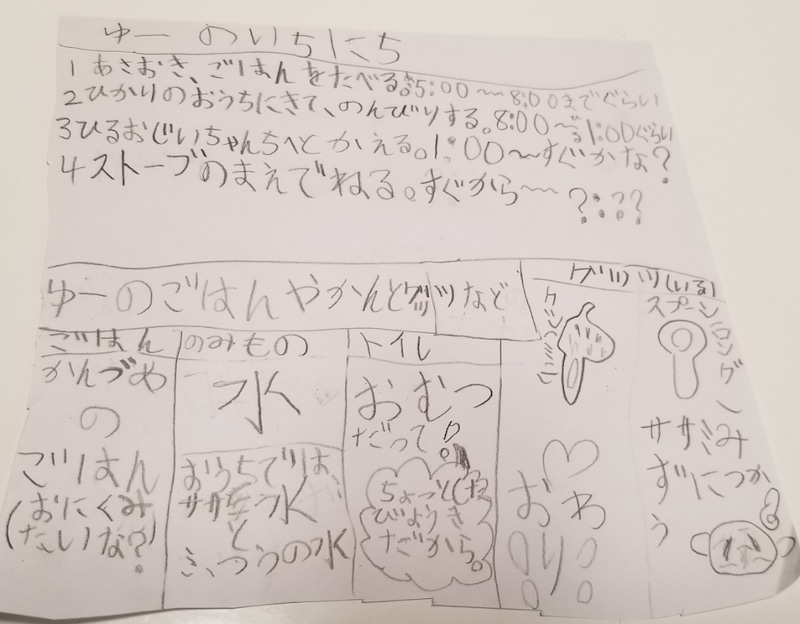 ゆーのいちにち
1 あさおき、ごはんをたべる。5:00〜8:00までぐらい
2ひかりのおうちにきて、のんびりする。8:00〜1:00ぐらい
3ひるおじいちゃんちへとかえる。1:00〜すぐかな?
4ストーブのまえでねる。すぐから〜?:??
ゆーのごはんやかんとグッツなど
ごはん
かんづめ
の
ごはん
(おにくみ
たいな?)
のみもの
水
おうちでは、
ササミ水
と
ふつうの水
トイレ
おむつ
だって!?
ちょっとした
びょうき
だから。
グッツ(いる)
スプーン
(ロング)
ササミみ
ずにつか
う
おわ
り!!